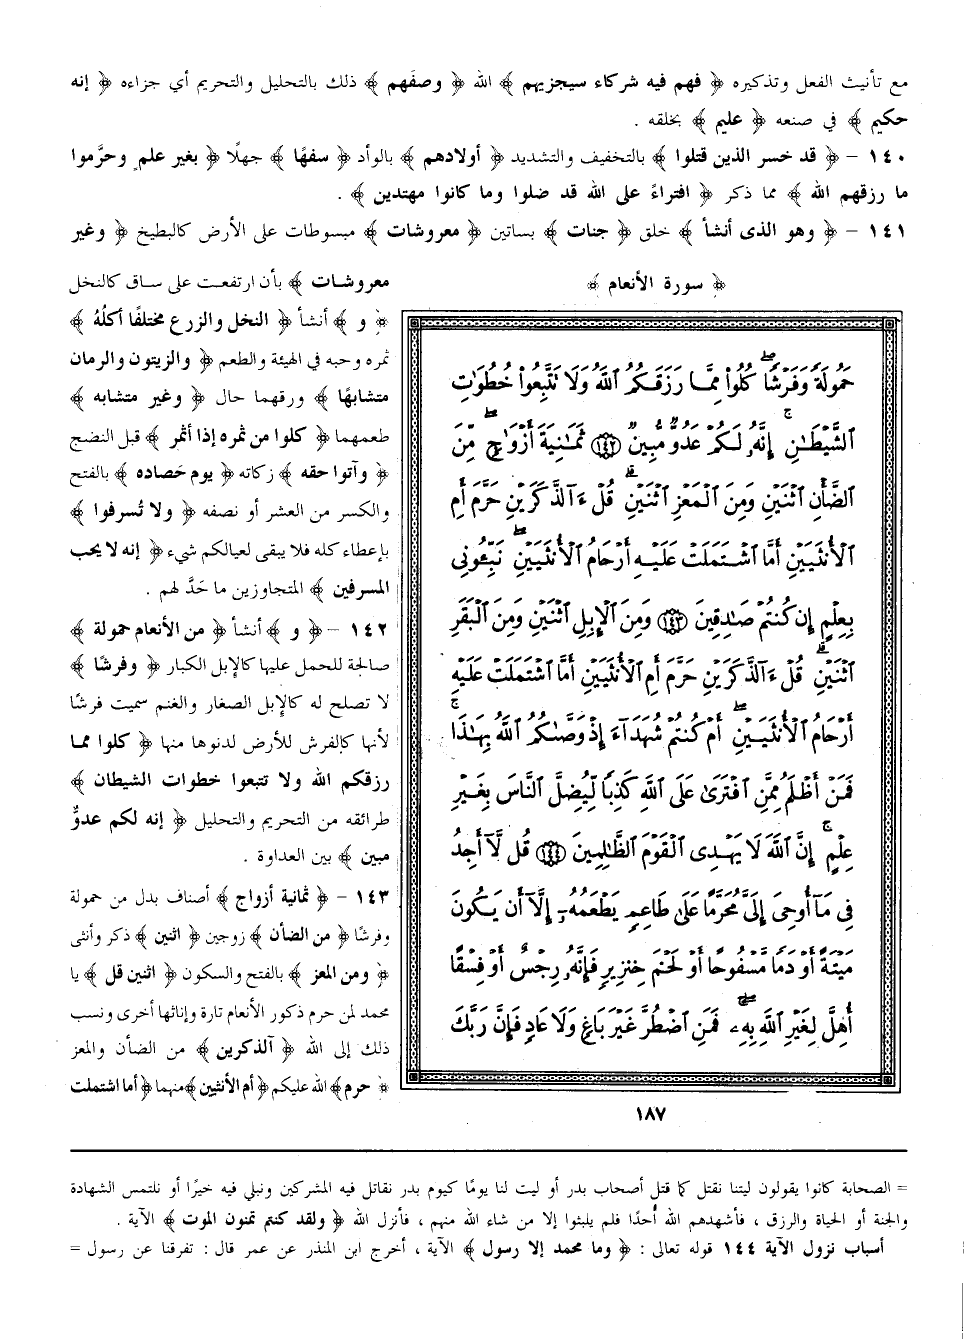 مع تأنيث الفعل وتذكيره ﴿ فهم فيه شركاء سيجزيهم ﴾ الله ﴿ وصفَهم ﴾ ذلك بالتحليل والتحريم أي جزاءه ﴿ إنه
حكيم ﴾ في صنعه ﴿ عليم ﴾ بخلقه .
١٤٠ – ﴿ قد خسر الذين قتلوا ﴾ بالتخفيف والتشديد ﴿ أولادهم ﴾ بالوأد ﴿ سفهًا ﴾ جهلًا ﴿ بغير علمٍ وحرَّموا
ما رزقهم الله ﴾ مما ذكر ﴿ افتراءً على الله قد ضلوا وما كانوا مهتدين ﴾ .
١٤١ – ﴿ وهو الذى أنشأ ﴾ خلق ﴿ جنات ﴾ بساتين ﴿ معروشات ﴾ مبسوطات على الأرض كالبطيخ ﴿ وغير
معروشات ﴾ بأن ارتفعت على ساق كالنخل
﴿ و ﴾ أنشأ ﴿ النخل والزرع مختلفًا أكلُهُ ﴾
ثمره وحبه في الهيئة والطعم ﴿ والزيتون والرمان
متشابهًا ﴾ ورقهما حال ﴿ وغير متشابه ﴾
طعمهما ﴿ كلوا من ثمره إذا أثمر ﴾ قبل النضج
﴿ وآتوا حقه ﴾ زكاته ﴿ يوم حَصاده ﴾ بالفتح
والكسر من العشر أو نصفه ﴿ ولا تُسرفوا ﴾
بإعطاء كله فلا يبقى لعيالكم شيء ﴿ إنه لا يحب
المسرفين ﴾ المتجاوزين ما حَدَّ لهم .
١٤٢ – ﴿ و ﴾ أنشأ ﴿ من الأنعام حمولة ﴾
صالحة للحمل عليها كالإبل الكبار ﴿ وفرشًا ﴾
لا تصلح له كالإبل الصغار والغنم سميت فرشًا
لأنها كالفرش للأرض لدنوها منها ﴿ كلوا مما
رزقكم الله ولا تتبعوا خطوات الشيطان ﴾
طرائقه من التحريم والتحليل ﴿ إنه لكم عدوٌّ
مبين ﴾ بين العداوة .
١٤٣ – ﴿ ثمانية أزواج ﴾ أصناف بدل من حمولة
وفرشًا ﴿ من الضأن ﴾ زوجين ﴿ اثنين ﴾ ذكر وأنثى
﴿ ومن المعز ﴾ بالفتح والسكون ﴿ اثنين قل ﴾ يا
محمد لمن حرم ذكور الأنعام تارة وإناثها أخرى ونسب
ذلك إلى الله ﴿ آلذكرين ﴾ من الضأن والمعز
﴿ حرم ﴾ الله عليكم ﴿ أم الأنثيين ﴾ منهما ﴿ أما اشتملت
﴿ سورة الأنعام ﴾
حَمُولَةً وَفَرْشًا ۚ كُلُوا۟ مِمَّا رَزَقَكُمُ ٱللَّهُ وَلَا تَتَّبِعُوا۟ خُطُوَٰتِ
ٱلشَّيْطَٰنِ ۚ إِنَّهُۥ لَكُمْ عَدُوٌّ مُّبِينٌ ١٤٢ ثَمَٰنِيَةَ أَزْوَٰجٍ ۖ مِّنَ
ٱلضَّأْنِ ٱثْنَيْنِ وَمِنَ ٱلْمَعْزِ ٱثْنَيْنِ ۗ قُلْ ءَآلذَّكَرَيْنِ حَرَّمَ أَمِ
ٱلْأُنثَيَيْنِ أَمَّا ٱشْتَمَلَتْ عَلَيْهِ أَرْحَامُ ٱلْأُنثَيَيْنِ ۖ نَبِّـُٔونِى
بِعِلْمٍ إِن كُنتُمْ صَٰدِقِينَ ١٤٣ وَمِنَ ٱلْإِبِلِ ٱثْنَيْنِ وَمِنَ ٱلْبَقَرِ
ٱثْنَيْنِ ۗ قُلْ ءَآلذَّكَرَيْنِ حَرَّمَ أَمِ ٱلْأُنثَيَيْنِ أَمَّا ٱشْتَمَلَتْ عَلَيْهِ
أَرْحَامُ ٱلْأُنثَيَيْنِ ۖ أَمْ كُنتُمْ شُهَدَآءَ إِذْ وَصَّىٰكُمُ ٱللَّهُ بِهَٰذَا ۚ
فَمَنْ أَظْلَمُ مِمَّنِ ٱفْتَرَىٰ عَلَى ٱللَّهِ كَذِبًا لِّيُضِلَّ ٱلنَّاسَ بِغَيْرِ
عِلْمٍ ۗ إِنَّ ٱللَّهَ لَا يَهْدِى ٱلْقَوْمَ ٱلظَّٰلِمِينَ ١٤٤ قُل لَّآ أَجِدُ
فِى مَآ أُوحِىَ إِلَىَّ مُحَرَّمًا عَلَىٰ طَاعِمٍ يَطْعَمُهُۥٓ إِلَّآ أَن يَكُونَ
مَيْتَةً أَوْ دَمًا مَّسْفُوحًا أَوْ لَحْمَ خِنزِيرٍ فَإِنَّهُۥ رِجْسٌ أَوْ فِسْقًا
أُهِلَّ لِغَيْرِ ٱللَّهِ بِهِۦ ۚ فَمَنِ ٱضْطُرَّ غَيْرَ بَاغٍ وَلَا عَادٍ فَإِنَّ رَبَّكَ
١٨٧
= الصحابة كانوا يقولون ليتنا نقتل كما قتل أصحاب بدر أو ليت لنا يومًا كيوم بدر نقاتل فيه المشركين ونبلي فيه خيرًا أو نلتمس الشهادة
والجنة أو الحياة والرزق ، فأشهدهم الله أُحدًا فلم يلبثوا إلا من شاء الله منهم ، فأنزل الله ﴿ ولقد كنتم تمنون الموت ﴾ الآية .
أسباب نزول الآية ١٤٤ قوله تعالى : ﴿ وما محمد إلا رسول ﴾ الآية ، أخرج ابن المنذر عن عمر قال : تفرقنا عن رسول =